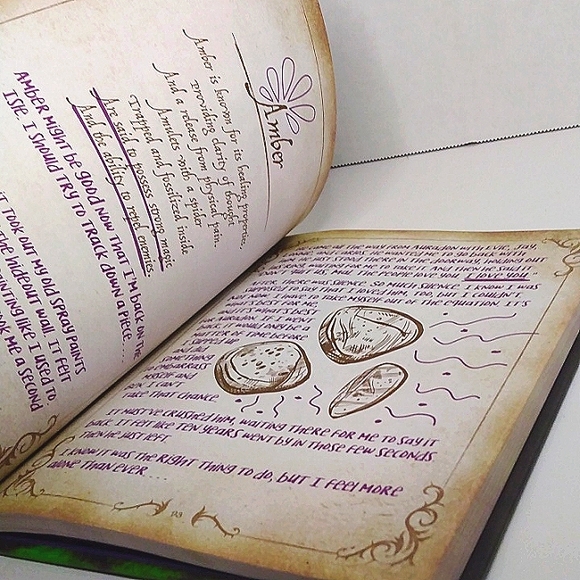 Amber
Amber is known for its healing properties,
providing clarity of thought
And a release from physical pain.
Amulets with a spider
Trapped and fossilized inside
Are said to possess strong magic
And the ability to repel enemies.
AMBER MIGHT BE GOOD NOW THAT I'M BACK ON THE
ISLE. I SHOULD TRY TO TRACK DOWN A PIECE...
I TOOK OUT MY OLD SPRAY PAINTS
THE HIDEOUT WALL. IT FELT
PAINTING LIKE I USED TO
ME A SECOND
COME ALL THE WAY FROM AURADON WITH EVIE, JAY,
AND CARLOS. HE WANTED ME TO GO BACK WITH
HIM. HE JUST STOOD THERE, HOLDING OUT
FOR ME TO TAKE IT. AND THEN HE SAID IT.
BUT US, MAL. I LOVE YOU.
AFTER, THERE WAS SILENCE. SO MUCH SILENCE. I KNOW I WAS
SUPPOSED TO SAY THAT I LOVED HIM, TOO, BUT I COULDN'T.
NOT NOW. I HAVE TO TAKE MYSELF OUT OF THE EQUATION. IT'S
WHAT'S BEST
AURADON. IF I WENT
BACK, IT WOULD ONLY BE A
MATTER OF TIME BEFORE
I SLIPPED UP
SOMETHING
EMBARRASS
MYSELF AND
BEN. I CAN'T
TAKE THAT CHANCE.
IT MUST'VE CRUSHED HIM, WAITING THERE FOR ME TO SAY IT
BACK. IT FELT LIKE TEN YEARS WENT BY IN THOSE FEW SECONDS
THEN HE JUST LEFT.
I KNOW IT WAS THE RIGHT THING TO DO, BUT I FEEL MORE
ALONE THAN EVER...